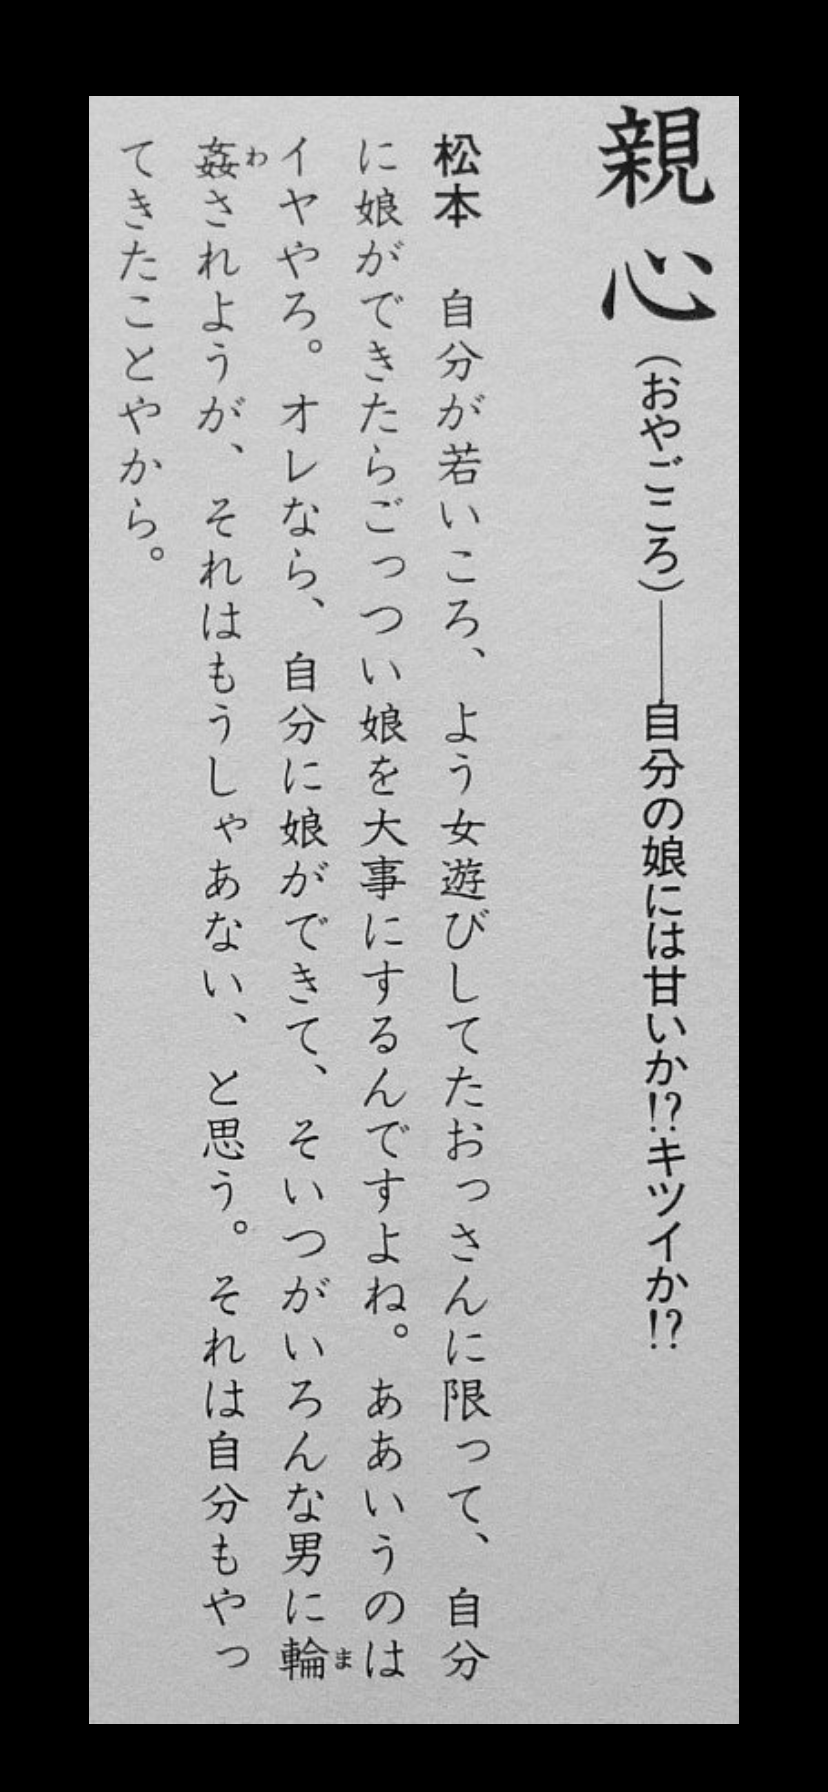 親心（おやごころ）――自分の娘には甘いか!?キツイか!?
松本　自分が若いころ、よう女遊びしてたおっさんに限って、自分
に娘ができたらごっつい娘を大事にするんですよね。ああいうのは
イヤやろ。オレなら、自分に娘ができて、そいつがいろんな男に輪
ま
姦されようが、それはもうしゃあない、と思う。それは自分もやっ
わ
てきたことやから。